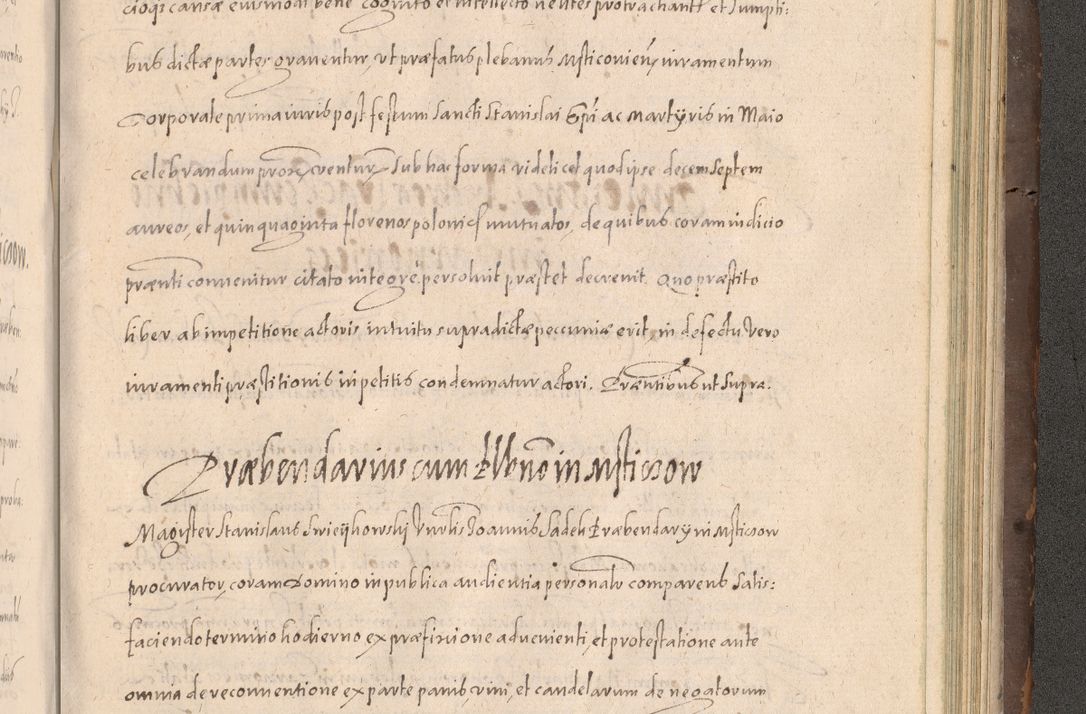 cioqꝫ causæ eiusmodi bene cognito et intellecto ne lites protrachantr et sumpti:
bus dictæ partes grauentur, ut præfatus plebanus Msticouien̄ iuramentum
Corporale prima iuris post festum sancti Stanislai Epī ac Martyris in Maio
celebrandum sub hac forma videlicet quod ipse decem septem
aureos, et quinquaginta florenos mutuatos, de quibus coram iudicio
præn̄ti conuenitur citato integre persoluit præstet decreuit. Quo præstito
liber ab impetitione actoris intuitu supradictæ pecuniæ erit, in defectu Vero
iuramenti præstitionis in petitis condemnatur actori. Præn̄tibus ut supra.
Præbendarius cum Plbn̄o in Msticzow
Magister Stanislaus Joannis Sadek Præbendarÿ in Msticzow
procurator, coram Domino in publica audientia personalr comparens Satis:
faciendo termino hodierno ex præfixione aduenienti, et protestatione ante
omnia de reconuentione ex parte panis, vini, et candelarum denegatorum